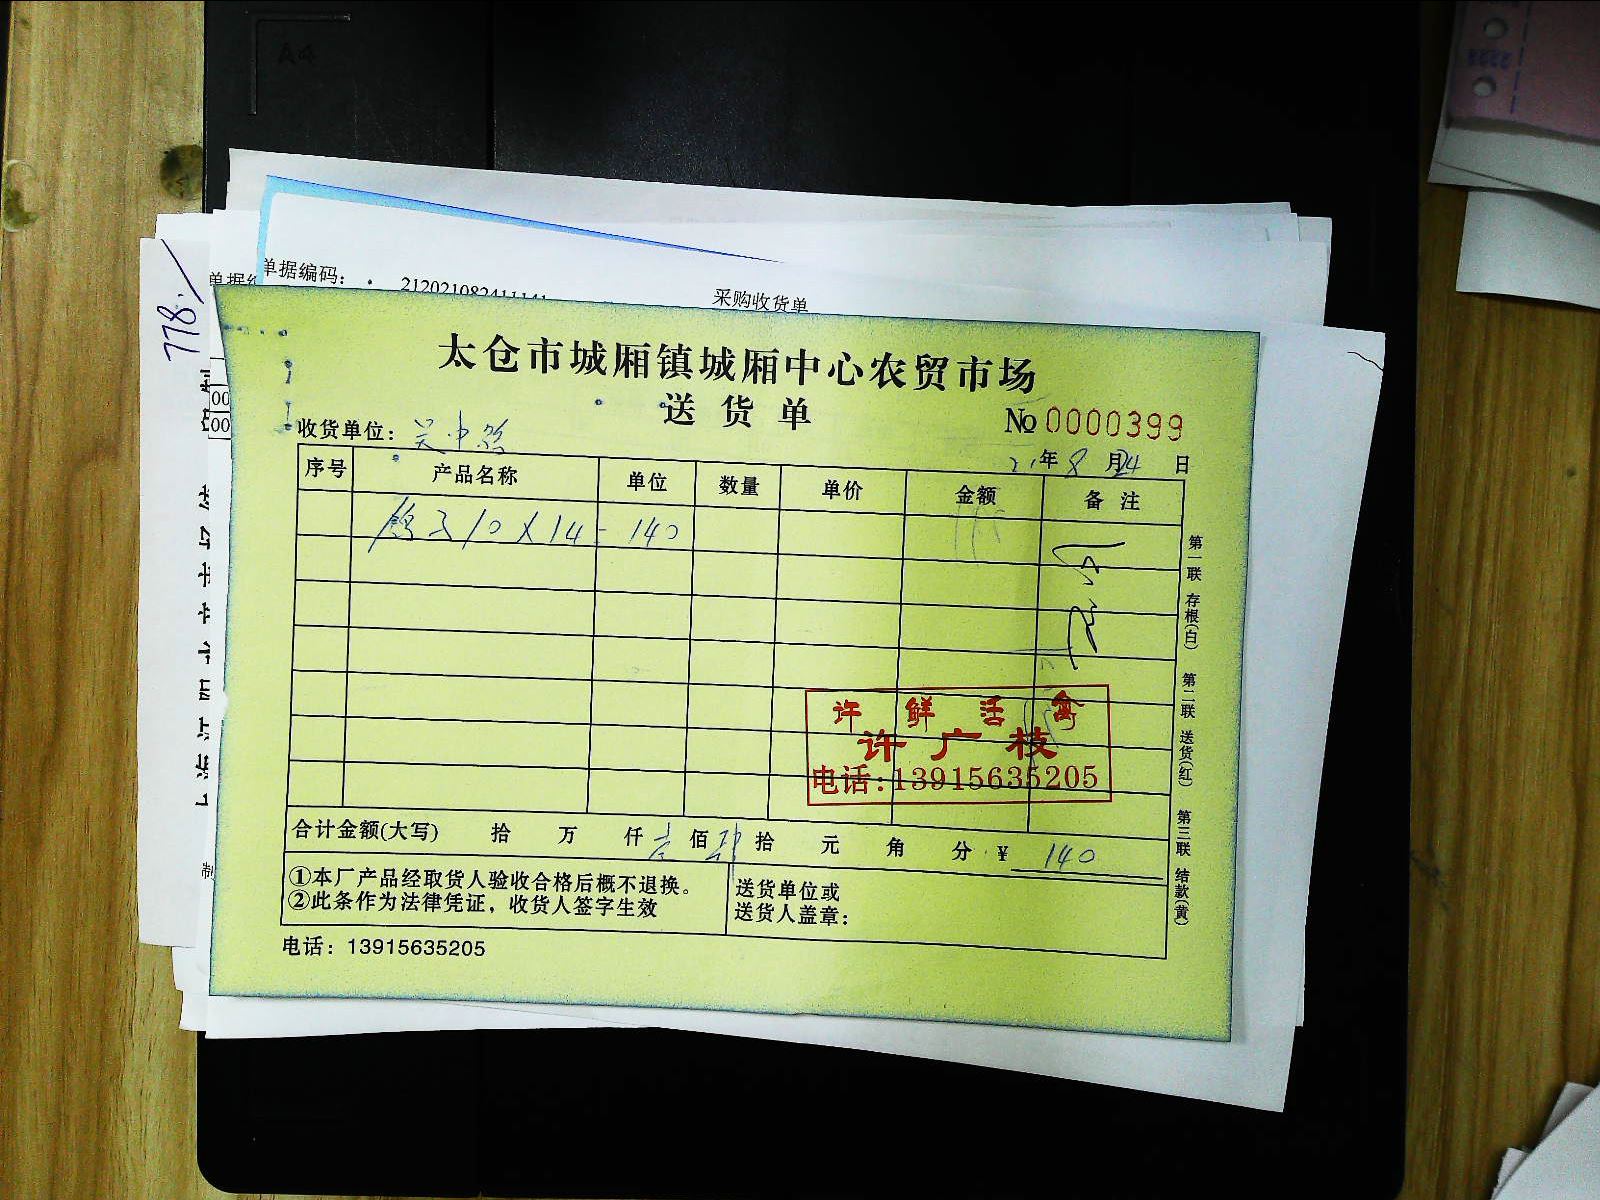 A4
778.
单据编码： 212021082411141
采购收货单
太仓市城厢镇城厢中心农贸市场
送货单
№ 0000399
收货单位：
21年8月24日
序号 产品名称 单位 数量 单价 金额 备注
鸽子10X14=140
许鲜活禽
许广枝
电话:13915635205
合计金额(大写) 拾 万 仟壹佰肆拾 元 角 分 ¥ 140
①本厂产品经取货人验收合格后概不退换。
②此条作为法律凭证，收货人签字生效
送货单位或
送货人盖章：
电话：13915635205
第一联 存根(白) 第二联 送货(红) 第三联 结款(黄)